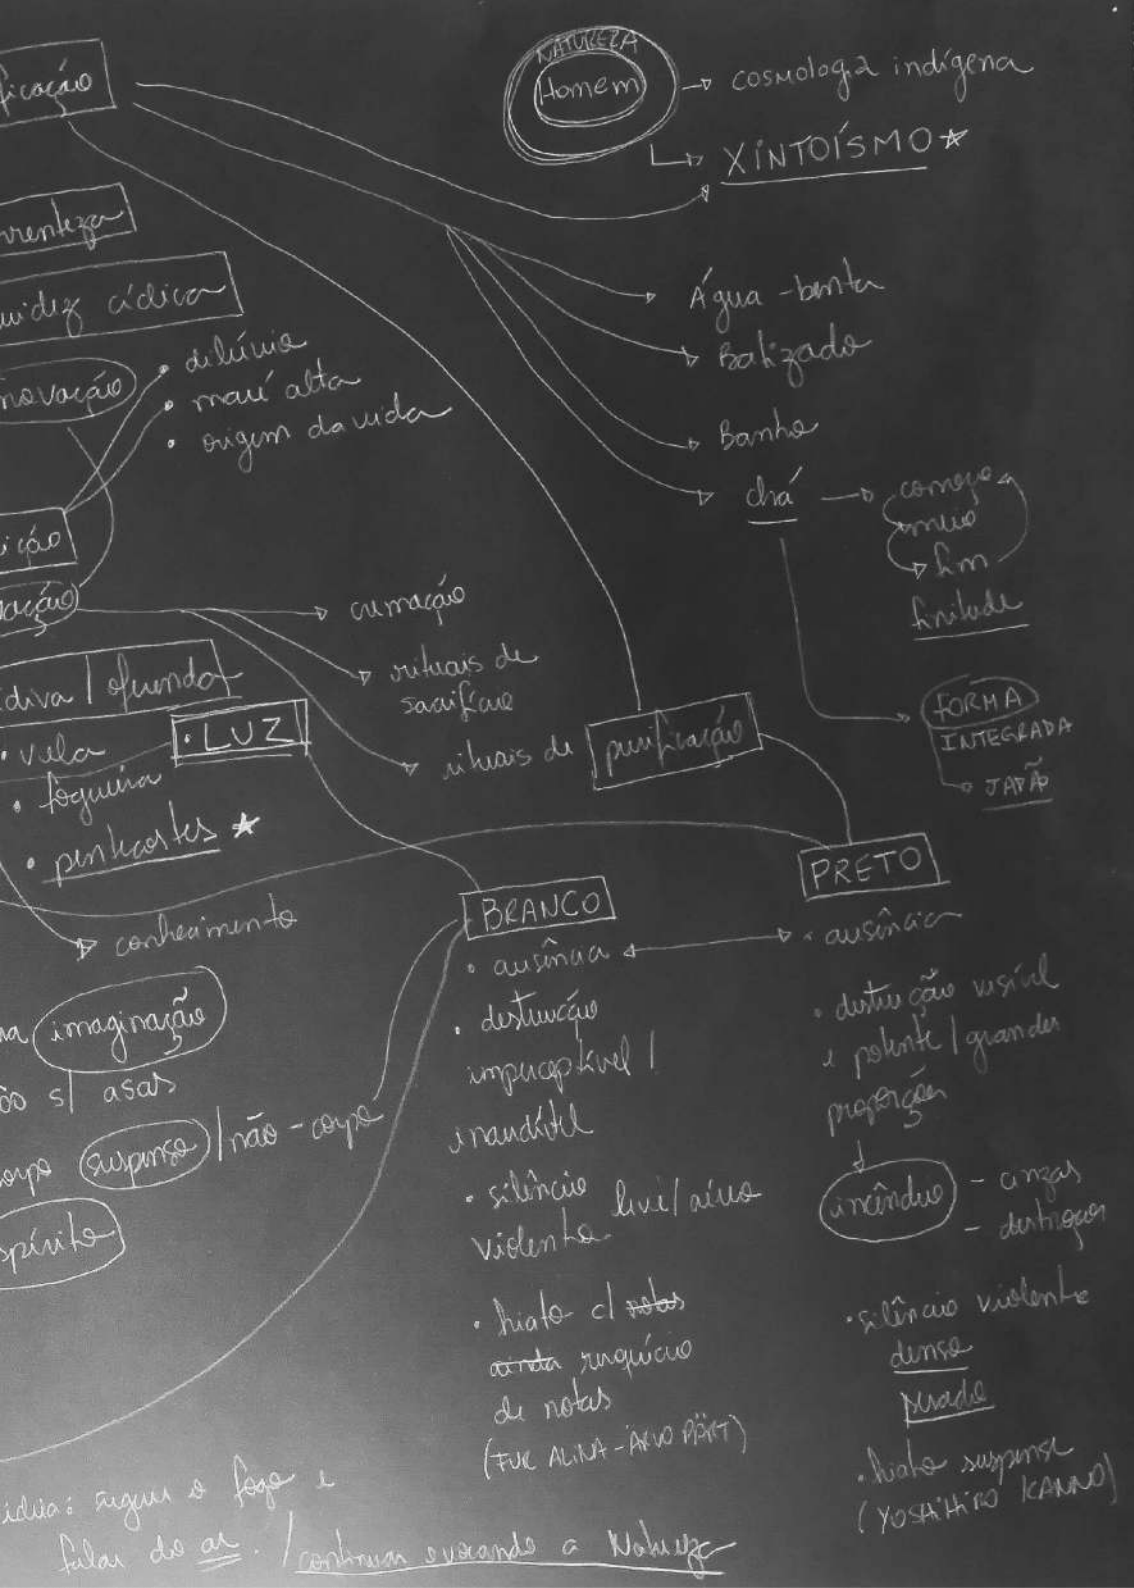 NATUREZA
Homem
cosmologia indígena
XINTOÍSMO
ficação
rrenteza
uidez cíclica
novação
• dilúvio
• maré alta
• origem da vida
Água-benta
Batizado
Banho
chá
começo
meio
fim
finitude
ição
ação
cremação
rituais de
sacrifício
rituais de purificação
FORMA
INTEGRADA
JAPÃO
diva / oferenda
• LUZ
• vela
• fogueira
• pentecostes
conhecimento
imaginação
s/ asas
corpo suspenso / não-corpo
spírito
BRANCO
• ausência
• destruição
imperceptível /
inaudível
• silêncio leve/aéreo
violento
• hiato c/ notas
ainda resquício
de notas
(FUR ALINA - ARVO PÄRT)
PRETO
• ausência
• destruição visível
e potente / grandes
proporções
incêndio
- cinzas
- destroços
• silêncio violento
denso
pesado
• hiato suspense
(YOSHIHIRO KANNO)
ideia: seguir o fogo e
falar do ar. / continuar evocando a Natureza